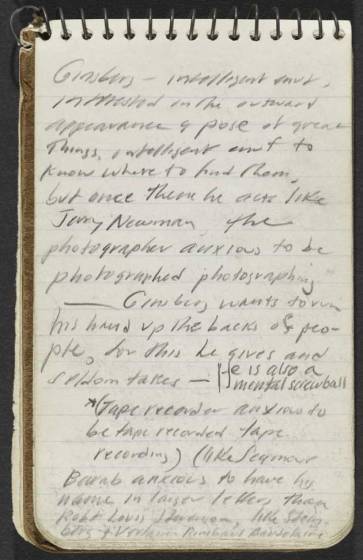 Ginsberg — intelligent enuf,
interested in the outward
appearance & pose of great
things, intelligent enuf to
know where to find them,
but once there he acts like
Jerry Newman the
photographer anxious to be
photographed photographing
— Ginsberg wants to run
his hand up the backs of peo-
ple, for this he gives and
seldom takes — He is also a
mental screwball
*(Tape recorder anxious to
be tape recorded tape
recording) (like Seymour
Barab anxious to have his
name in larger letters than
Robt Louis Stevenson, like Steig,
& Verlaine Rimbaud Baudelaire